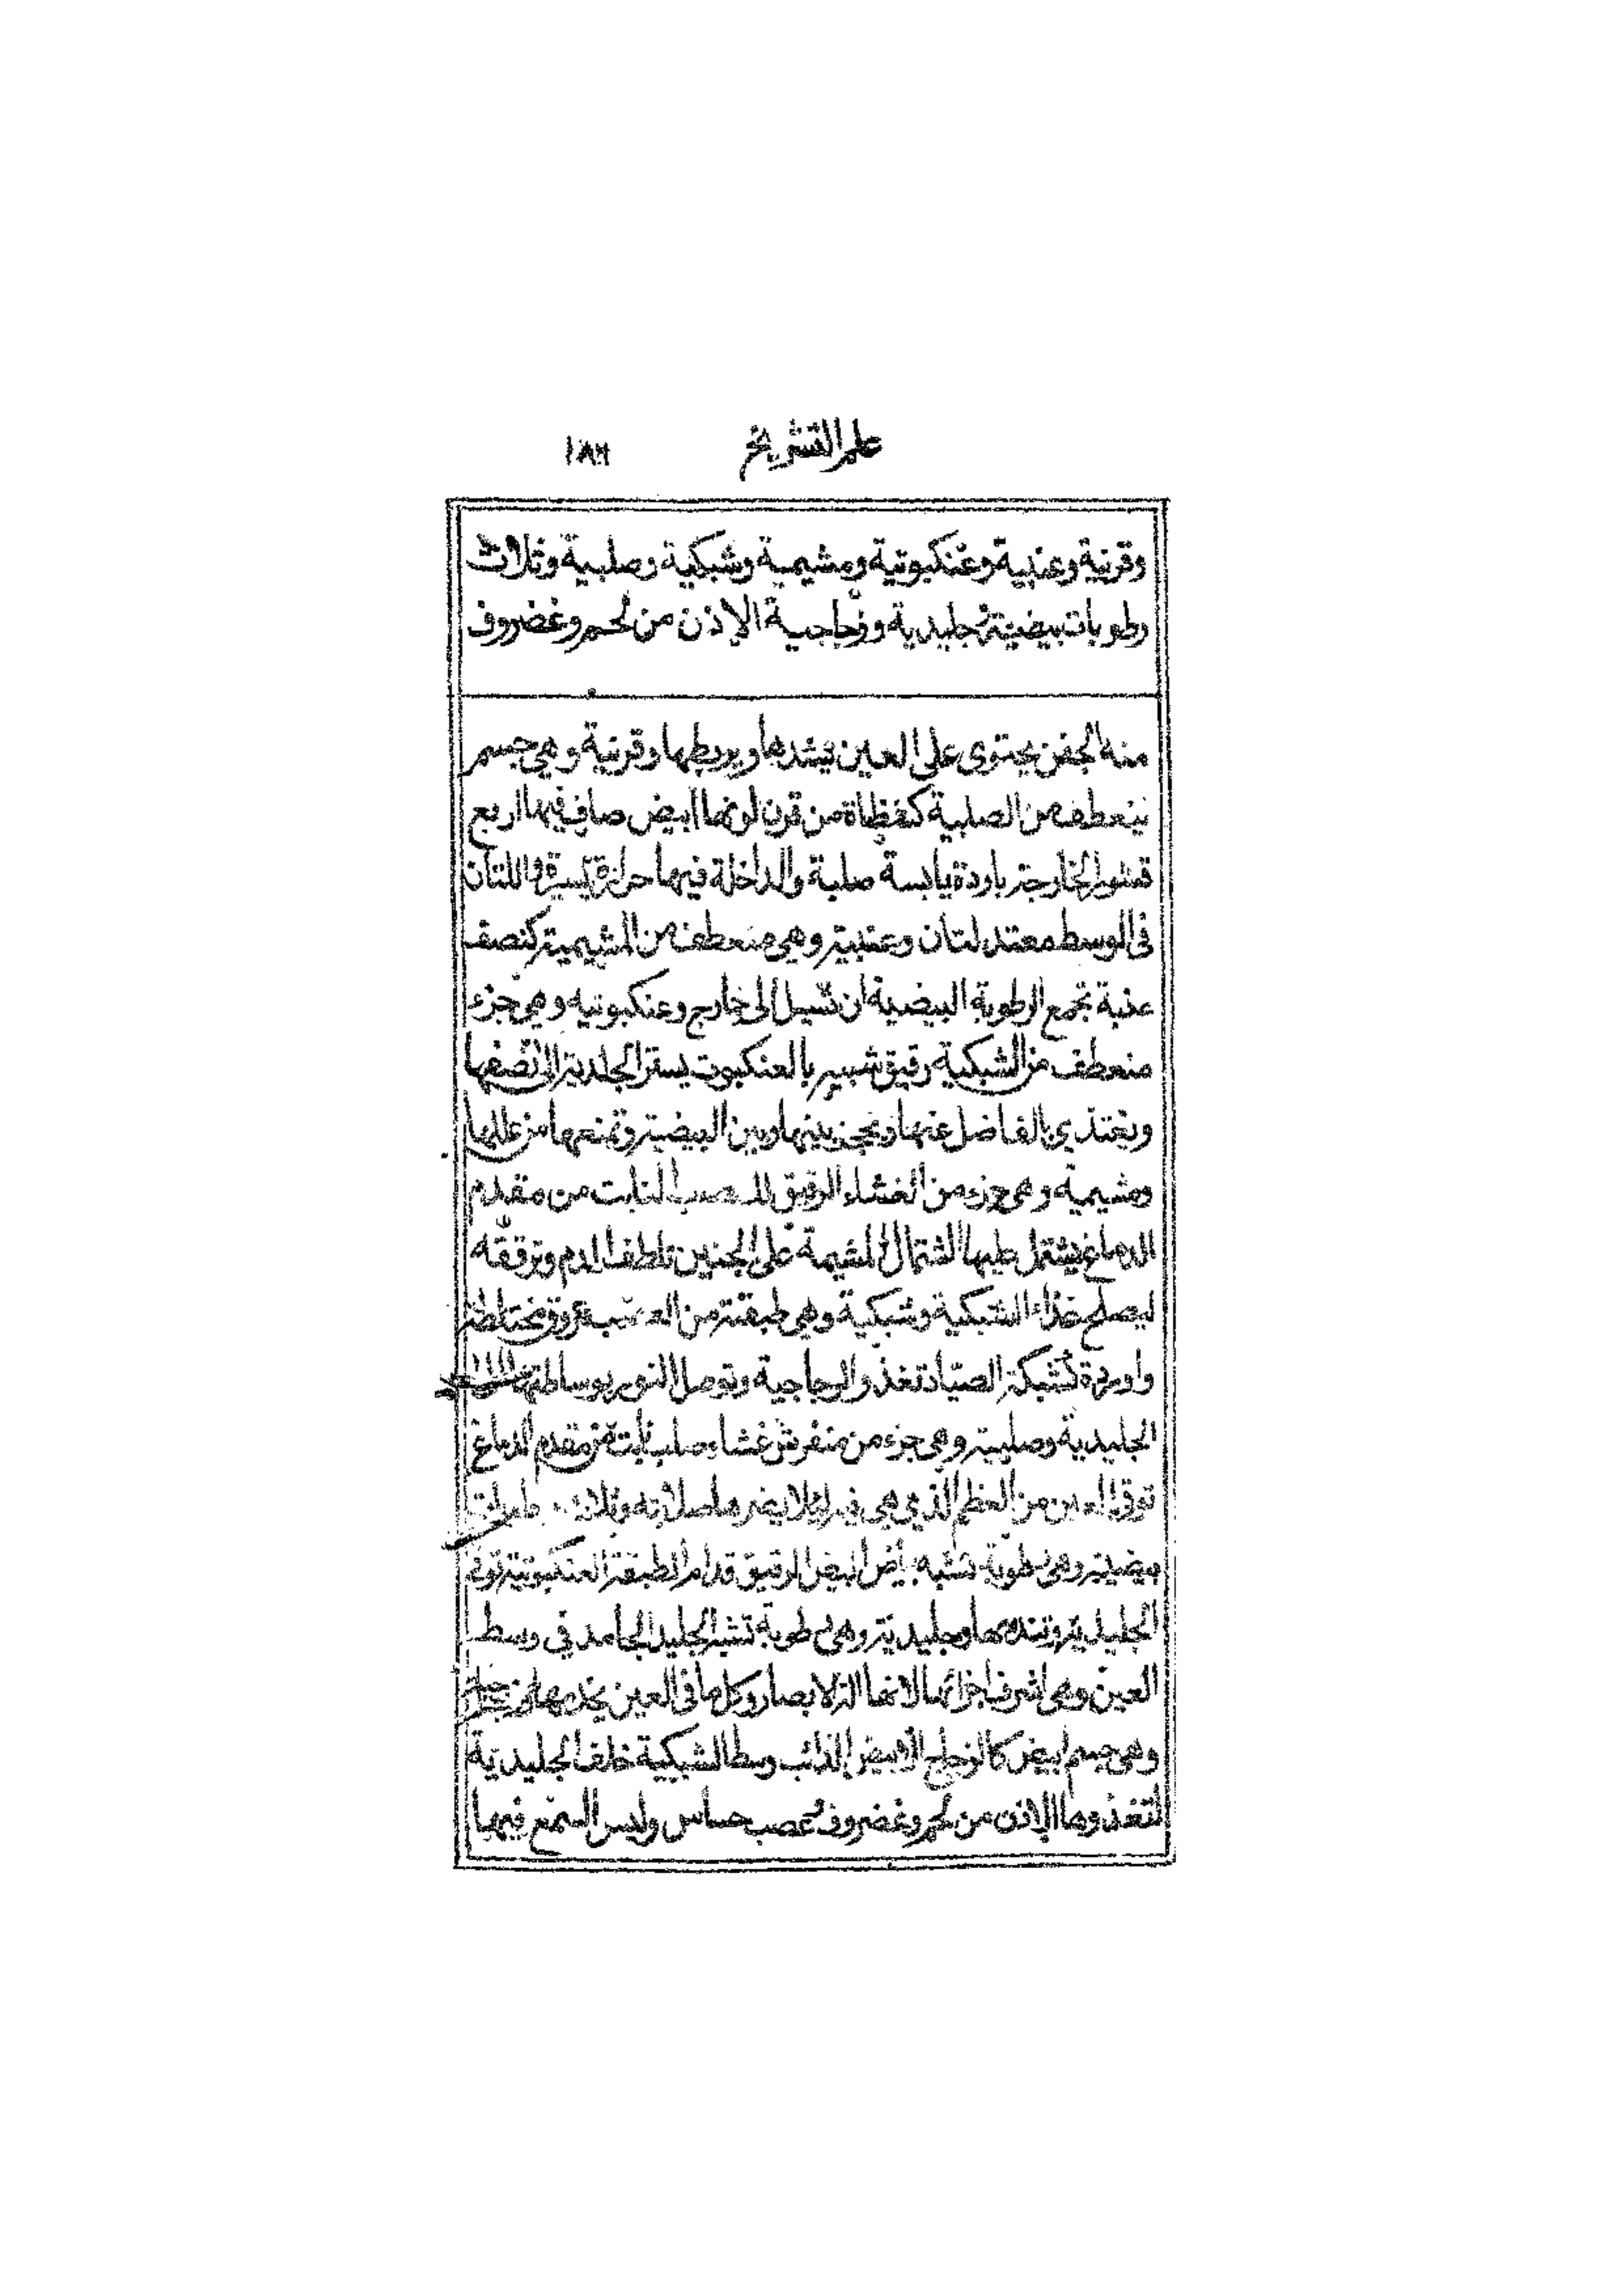 علم التشريح ١٨٦
وقرنية وعنبية وعنكبوتية ومشيمية وشبكية وصلبية وثلاث
رطوبات بيضية جليدية وزجاجية الاذن من لحم وغضروف
منه الجفن يحتوى على العين يشدها ويربطها وقرنية وهي جسم
ينعطف من الصلبية من قرن لونها ابيض صاف فيها اربع
قشور الخارجة باردة يابسة صلبة والداخلة فيها حرارة يسيرة واللتان
فى الوسط معتدلتان وعنبية وهي منعطف من المشيمية كنصف
عنبة تجمع الرطوبة البيضية ان تسيل الى خارج وعنكبوتيه وهي جزء
منعطف من الشبكية رقيق شبيه بالعنكبوت يستر الجلدية الى نصفها
ويغتذي بالفاضل عنها ويحجز بينها وبين البيضية وتمنعها من
ومشيمية وهي جزء من الغشاء الرقيق النابت من مقدم
الدماغ يشتمل عليها اشتمال المشيمة على الجنين تلطف الدم وترققه
ليصلح غذاء الشبكية وشبكية وهي طبقة من العصب عروق مختلطة
واوردة كشبكة الصياد تغذو الزجاجية وتوصل النور بوساطتها
الجليدية وصلبية وهي جزء من منفرش غشاء صلب نابت من مقدم الدماغ
توقي العين من العظم الذي هي فيه لئلا يضرها صلابته وثلاث
بيضية وهي رطوبة تشبه بياض البيض الرقيق قدام الطبقة العنكبوتية توقى
الجليدية وتنديها وجليدية وهي رطوبة تشبه الجليد الجامد في وسط
العين وهي اشرف اجزائها لانها الة الابصار وكل ما فى العين يخدمها
وهي جسم ابيض كالزجاج الابيض الذائب وسط الشبكية خلف الجليدية
لتغذوها الاذن من لحم وغضروف عصب حساس وليس السمع فيها